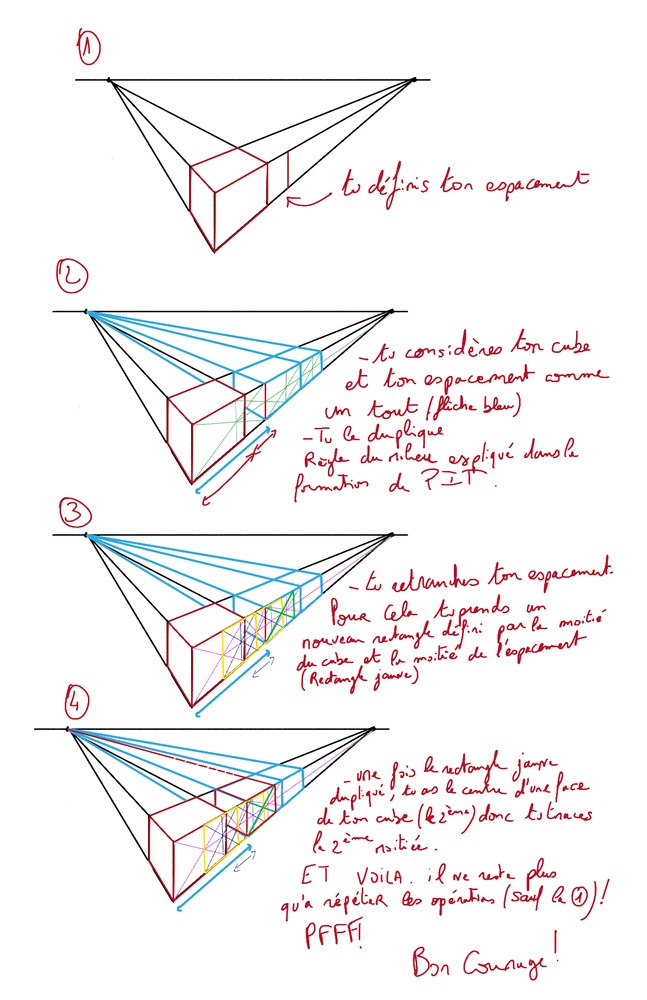 1
tu définis ton espacement
2
- tu considères ton cube
et ton espacement comme
un tout (flèche bleu)
- Tu le duplique
Règle du milieu expliqué dans la
formation de PIT.
3
- tu retranches ton espacement.
Pour cela tu prends un
nouveau rectangle défini par la moitié
du cube et la moitié de l'espacement
(Rectangle jaune)
4
- une fois le rectangle jaune
dupliqué, tu as le centre d'une face
de ton cube (le 2ème) donc tu traces
la 2ème moitiée.
ET VOILA. il ne reste plus
qu'a répéter les opérations (sauf la 1)!
PFFF!
Bon Courage!